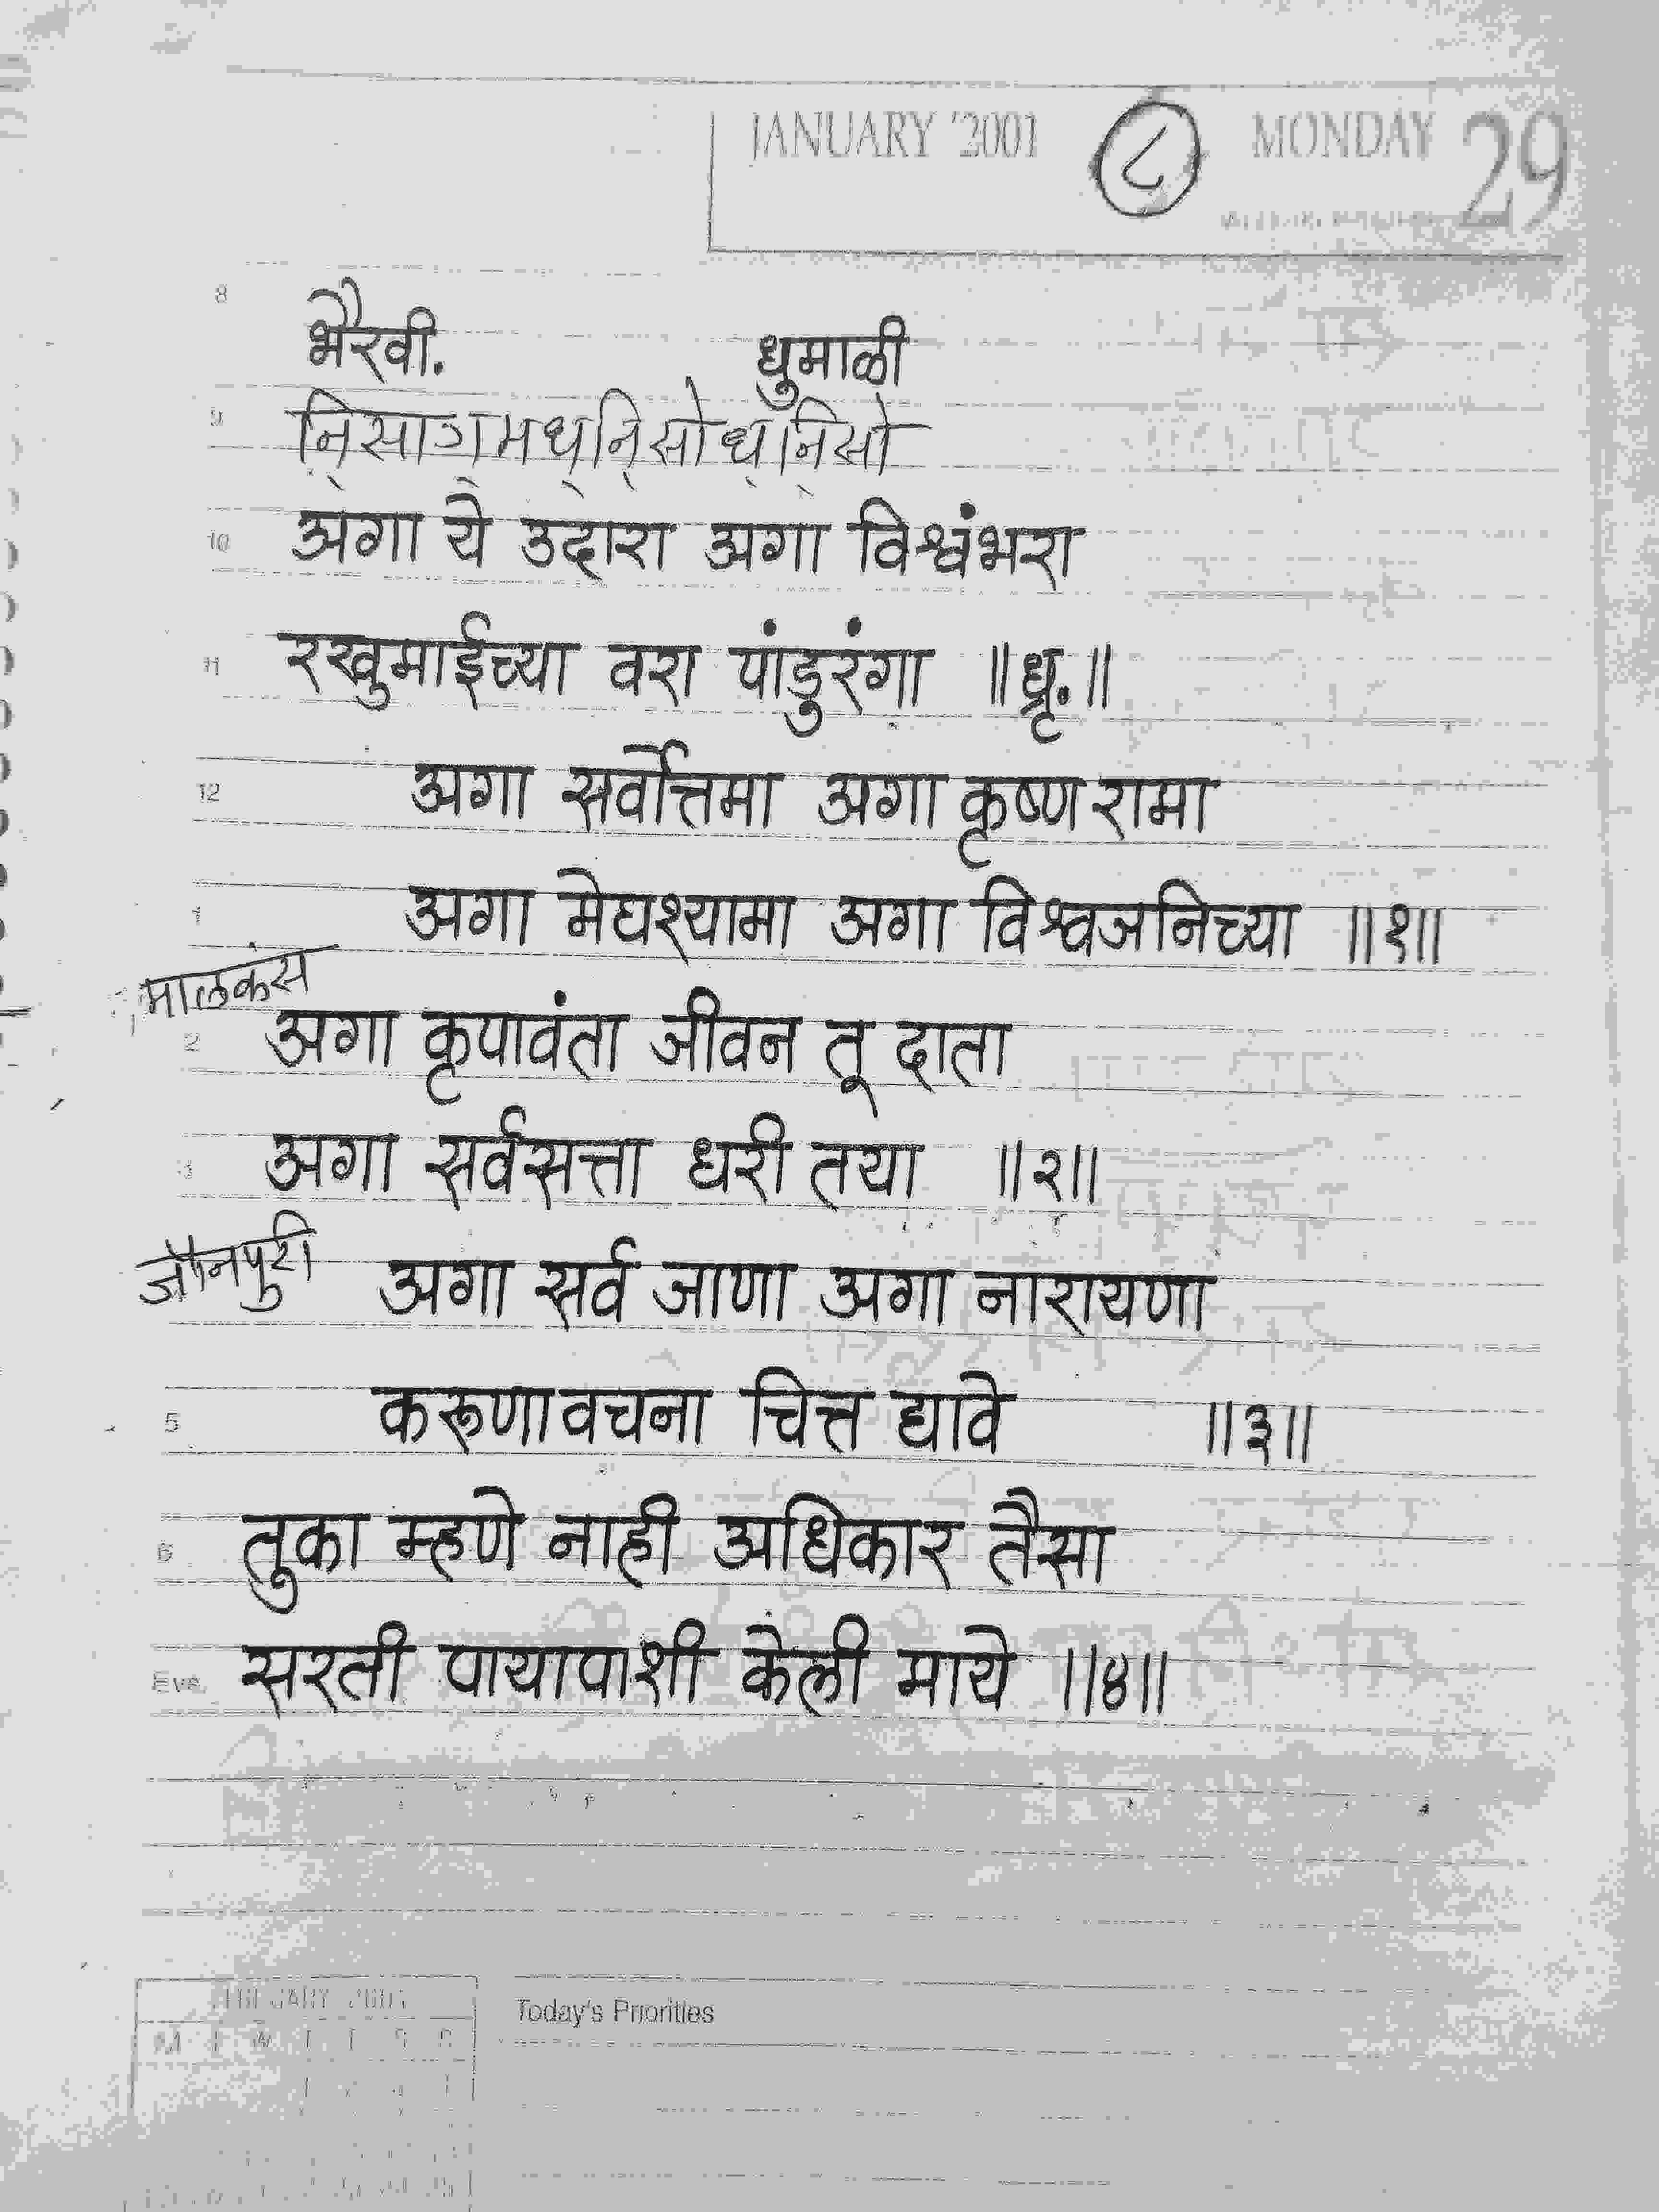 JANUARY '2001 ८ MONDAY 29
8
भैरवी. धुमाळी
9 नि॒साग॒मध॒नि॒सो ध॒नि॒सो
10 अगा ये उदारा अगा विश्वंभरा
11 रखुमाईच्या वरा पांडुरंगा ॥ध्रृ.॥
12 अगा सर्वोत्तमा अगा कृष्णरामा
1 अगा मेघश्यामा अगा विश्वजनिच्या ॥१॥
मालकंस
2 अगा कृपावंता जीवन तू दाता
3 अगा सर्वसत्ता धरी तया ॥२॥
जौनपुरी अगा सर्व जाणा अगा नारायणा
5 करूणावचना चित्त द्यावे ॥३॥
6 तुका म्हणे नाही अधिकार तैसा
Eve. सरती पायापाशी केली माये ॥४॥
Today's Priorities